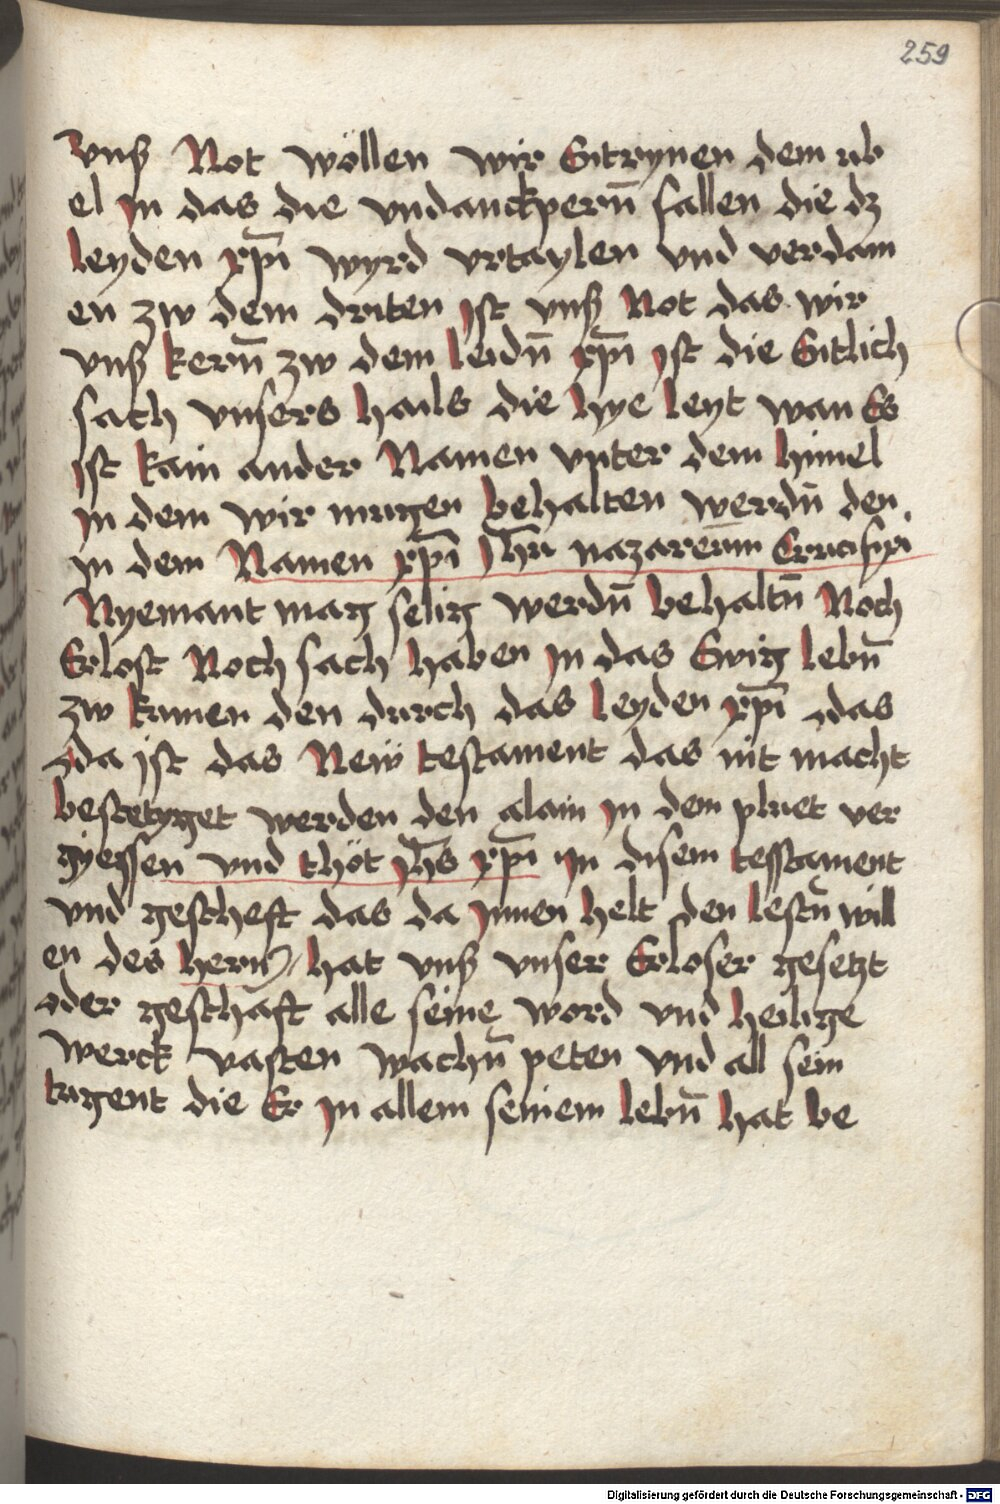 259
vnß Not wöllen wir Entrynen dem ub
el In das die vndanckpern̄ fallen die dz
leyden xp̄i wyrd vrtaylen vnd verdam
en zw dem driten Ist vnß Not das wir
vnß kern̄ zw dem leidn̄ xp̄i Ist die Entlich
sach vnsers hails die hye leyt wan Es
Ist kain ander Namen vnter dem himel
In dem wir mugen behalten werdn̄ den
In dem Namen xp̄i Jhū nazarenum Crucifixi
Nyemant mag selig werdn̄ behaltn̄ Noch
Erlost Noch sach haben In das Ewig lebn̄
zw kumen den durch das leyden xp̄i das
da ist das New testament das nit macht
bestetyget werden den alain in dem pluet ver
gyessen vnd thöt Jhs̄ xp̄i In disem testament
vnd gescheft das da Innen helt den lestn̄ will
en des hern hat vnß vnser Erloser gesetzt
oder geschaft alle seine word vnd heilige
werck vasten wachn̄ peten vnd all sein
tugent die Er In allem seinem lebn̄ hat be
Digitalisierung gefördert durch die Deutsche Forschungsgemeinschaft - DFG